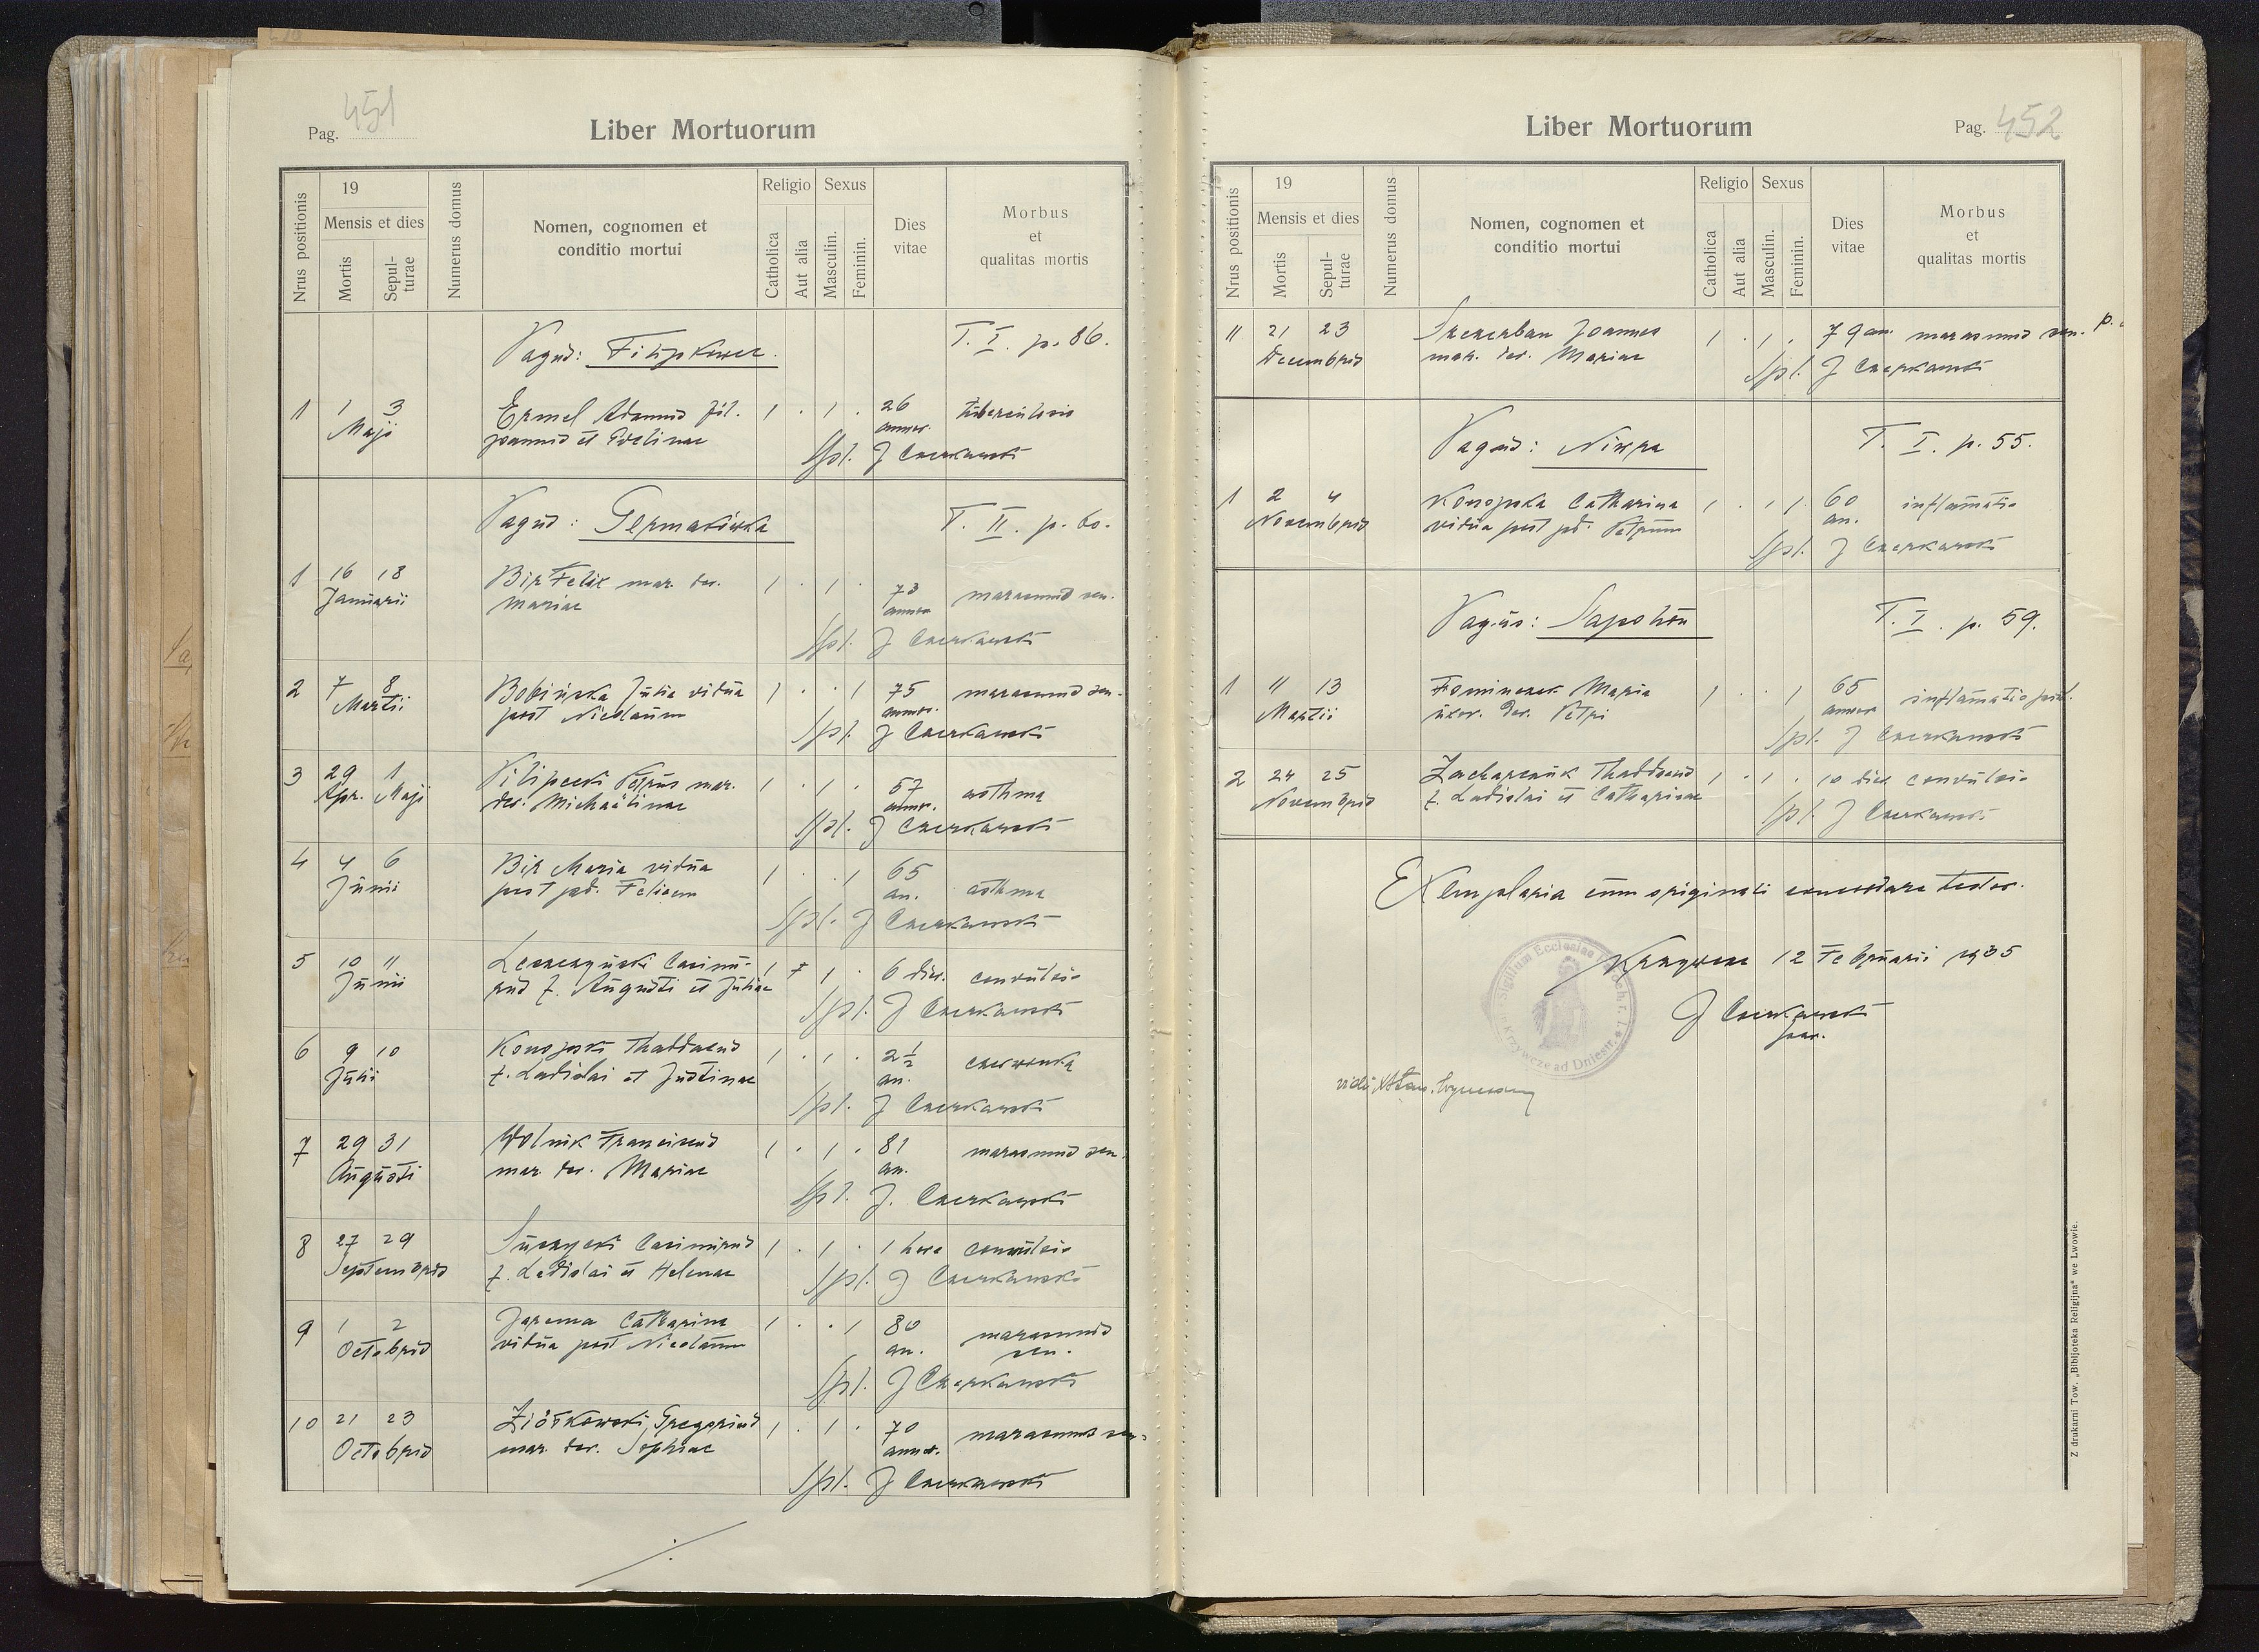 Pag. 451
Liber Mortuorum
Nrus positionis
19
Mensis et dies
Mortis
Sepul-
turae
Numerus domus
Nomen, cognomen et
conditio mortui
Religio
Catholica
Aut alia
Sexus
Masculin.
Feminin.
Dies
vitae
Morbus
et
qualitas mortis
Pagus: Filipkowce. T. I. p. 86.
1 1 3 Ermel Adamus fil. 1 . 1 . 26 tuberculosis
Maji Joannis et Evelinae annor.
Spl. J Czerkawski
Pagus: Germakówka T. II. p. 60.
1 16 18 Bir Felix mar. der. 1 . 1 . 73 marasmus sen.
Januarii Mariae annor.
Spl. J Czerkawski
2 7 8 Bobińska Julia vidua 1 . . 1 75 marasmus sen.
Martii post Nicolaum annor.
Spl. J Czerkawski
3 29 1 Filipecki Petrus mar. 1 . 1 . 57 asthma
Apr. Maji der. Michaëlinae annor.
Spl. J Czerkawski
4 4 6 Bir Maria vidua 1 . . 1 65
Junii post pd. Felicem an. asthma
Spl. J Czerkawski
5 10 11 Leszczyński Casimi- 1 1 . 6 dier. convulsio
Junii rus f. Augusti et Juliae
Spl. J Czerkawski
6 9 10 Konopski Thaddaeus 1 . 1 . 2 1/2 czerwonka
Julii f. Ladislai et Justinae an.
Spl. J Czerkawski
7 29 31 Wolnik Franciscus 1 . 1 . 81 marasmus sen.
Augusti mar. der. Mariae an.
Spl. J. Czerkawski
8 27 29 Casimirus 1 . 1 . 1 hora convulsio
Septembris f. Ladislai et Helenae
Spl. J Czerkawski
9 1 2 Jarema Catharina 1 . . 1 80 marasmus
Octobris vidua post Nicolaum an. sen.
Spl. J Czerkawski
10 21 23 Ziółkowski Gregorius 1 . 1 . 70 marasmus sen.
Octobris mar. der. Sophiae annor.
Spl. J Czerkawski
Liber Mortuorum
Pag. 452
Nrus positionis
19
Mensis et dies
Mortis
Sepul-
turae
Numerus domus
Nomen, cognomen et
conditio mortui
Religio
Catholica
Aut alia
Sexus
Masculin.
Feminin.
Dies
vitae
Morbus
et
qualitas mortis
11 21 23 Szczerban Joannes 1 . 1 . 79 an. marasmus sen.
Decembris mar. der. Mariae
Spl. J Czerkawski
Pagus: Niwra T. I. p. 55.
1 2 4 Konopska Catharina 1 . 1 1 60 inflamatio
Novembris vidua post pd. Petrum an.
Spl. J Czerkawski
Pagus: Sapohów T. I. p. 59.
1 11 13 Maria 1 . . 1 65
Martii uxor. der. Petri annor inflamatio pul.
Spl. J Czerkawski
2 24 25 Zacharczuk Thaddaeus 1 . 1 . 10 dier convulsio
Novembris f. Ladislai et Catharinae
Spl. J Czerkawski
Exemplaria cum originali concordare testor.
Krzywcze 12 Februarii 1935
J Czerkawski
par.
Sigillum Ecclesiae Krzywcze ad Dniestr.
Z drukarni Tow. „Bibljoteka Religijna" we Lwowie.